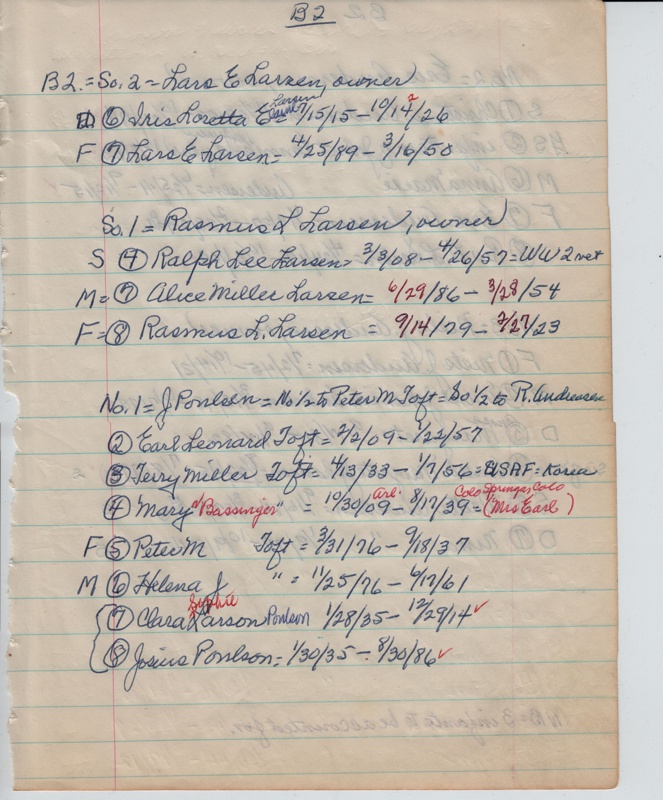 B2
B2.= So. 2 = Lars E Larsen, owner
D ⑥ Iris Loretta E Larsen = 7/15/15 – 10/14/26
F ⑦ Lars E Larsen = 4/25/89 – 3/16/50
So. 1 = Rasmus L Larsen, owner
S ④ Ralph Lee Larsen = 3/3/08 – 4/26/57 = WW2 vet
M = ⑦ Alice Miller Larsen = 6/29/86 – 3/28/54
F = ⑧ Rasmus L. Larsen = 9/14/79 – 2/27/23
No. 1 = J Poulsen = No 1/2 to Peter M Toft = So 1/2 to R. Andreasen
② Earl Leonard Toft = 2/2/09 – 1/22/57
③ Terry Miller Toft = 4/13/33 – 1/7/56 = USAF = Korea
④ Mary "Bassinger" " = 10/30/09 Arl. – 8/17/39 = Colo Springs, Colo (Mrs Earl)
F ⑤ Peter M Toft = 3/31/76 – 9/18/37
M ⑥ Helena J " = 11/25/76 – 6/17/61
⑦ Clara Sophie Larson Poulson 1/28/35 – 12/29/14 ✓
⑧ Josius Poulson = 1/30/35 – 8/30/86 ✓